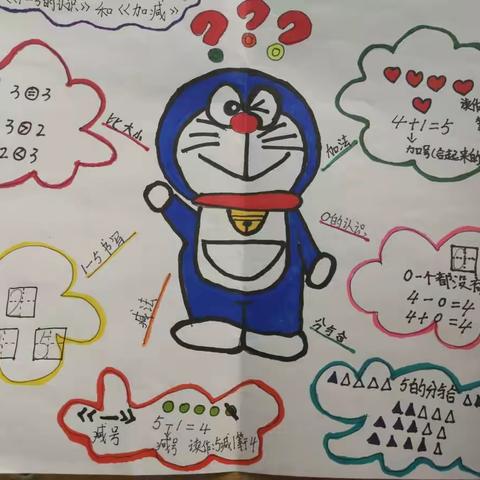 的认识》和《加减》
3=3
3>2
2<3
比大小
4+1=5
加号(合起来的
加法
0的认识
0一个都没有
4-0=4
4+0=4
1-5书写
减法
分与合
《—》
减号
5-1=4
减号 读作:5减1等于4
5的分与合